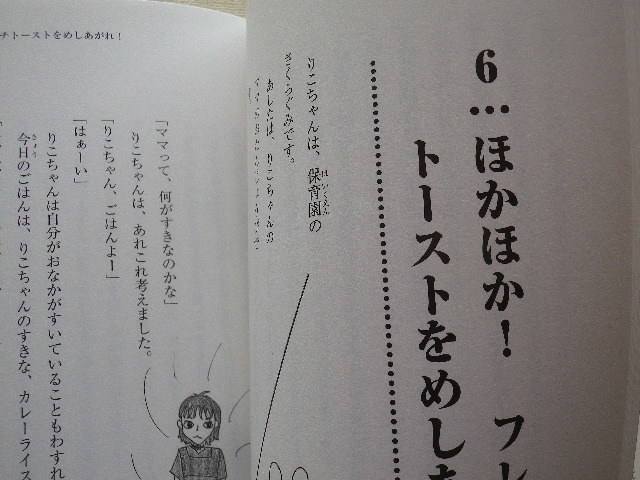 6…ほかほか！ フレ
トーストをめしあ
りこちゃんは、保育園の
さくらぐみです。
あしたは、りこちゃんの
チトーストをめしあがれ！
「ママって、何がすきなのかな」
りこちゃんは、あれこれ考えました。
「りこちゃん、ごはんよー」
「はぁーい」
りこちゃんは自分がおなかがすいていることもわすれ
今日のごはんは、りこちゃんのすきな、カレーライス